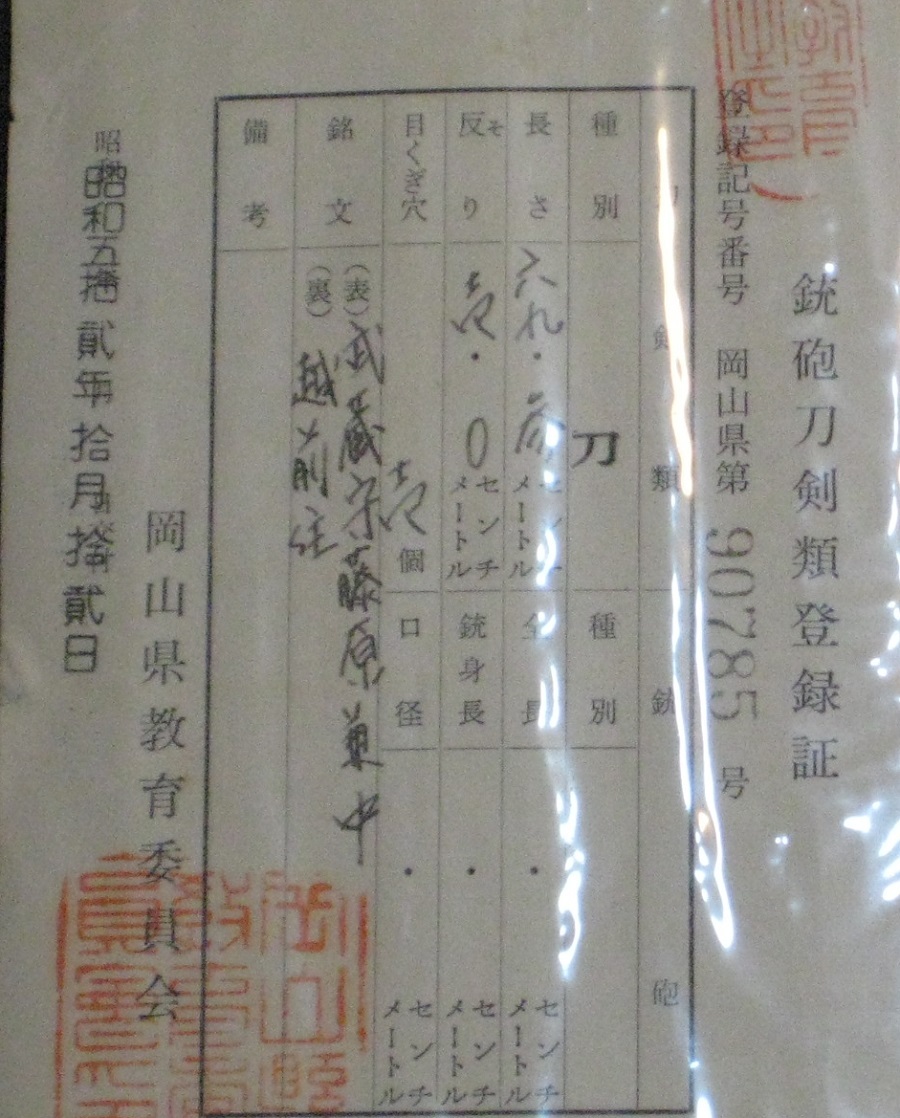 銃砲刀剣類登録証
登録記号番号 岡山県第 90785 号
剣類 銃砲
種別 刀 種別
長さ 六九・参 センチメートル 全長 ・ センチメートル
反り そ 壱・0 センチメートル 銃身長 ・ センチメートル
目くぎ穴 壱個 口径 ・ センチメートル
銘文 (表) 武蔵守藤原兼中
(裏) 越前住
備考
岡山県教育委員会
昭和五拾貮年拾月拾貮日